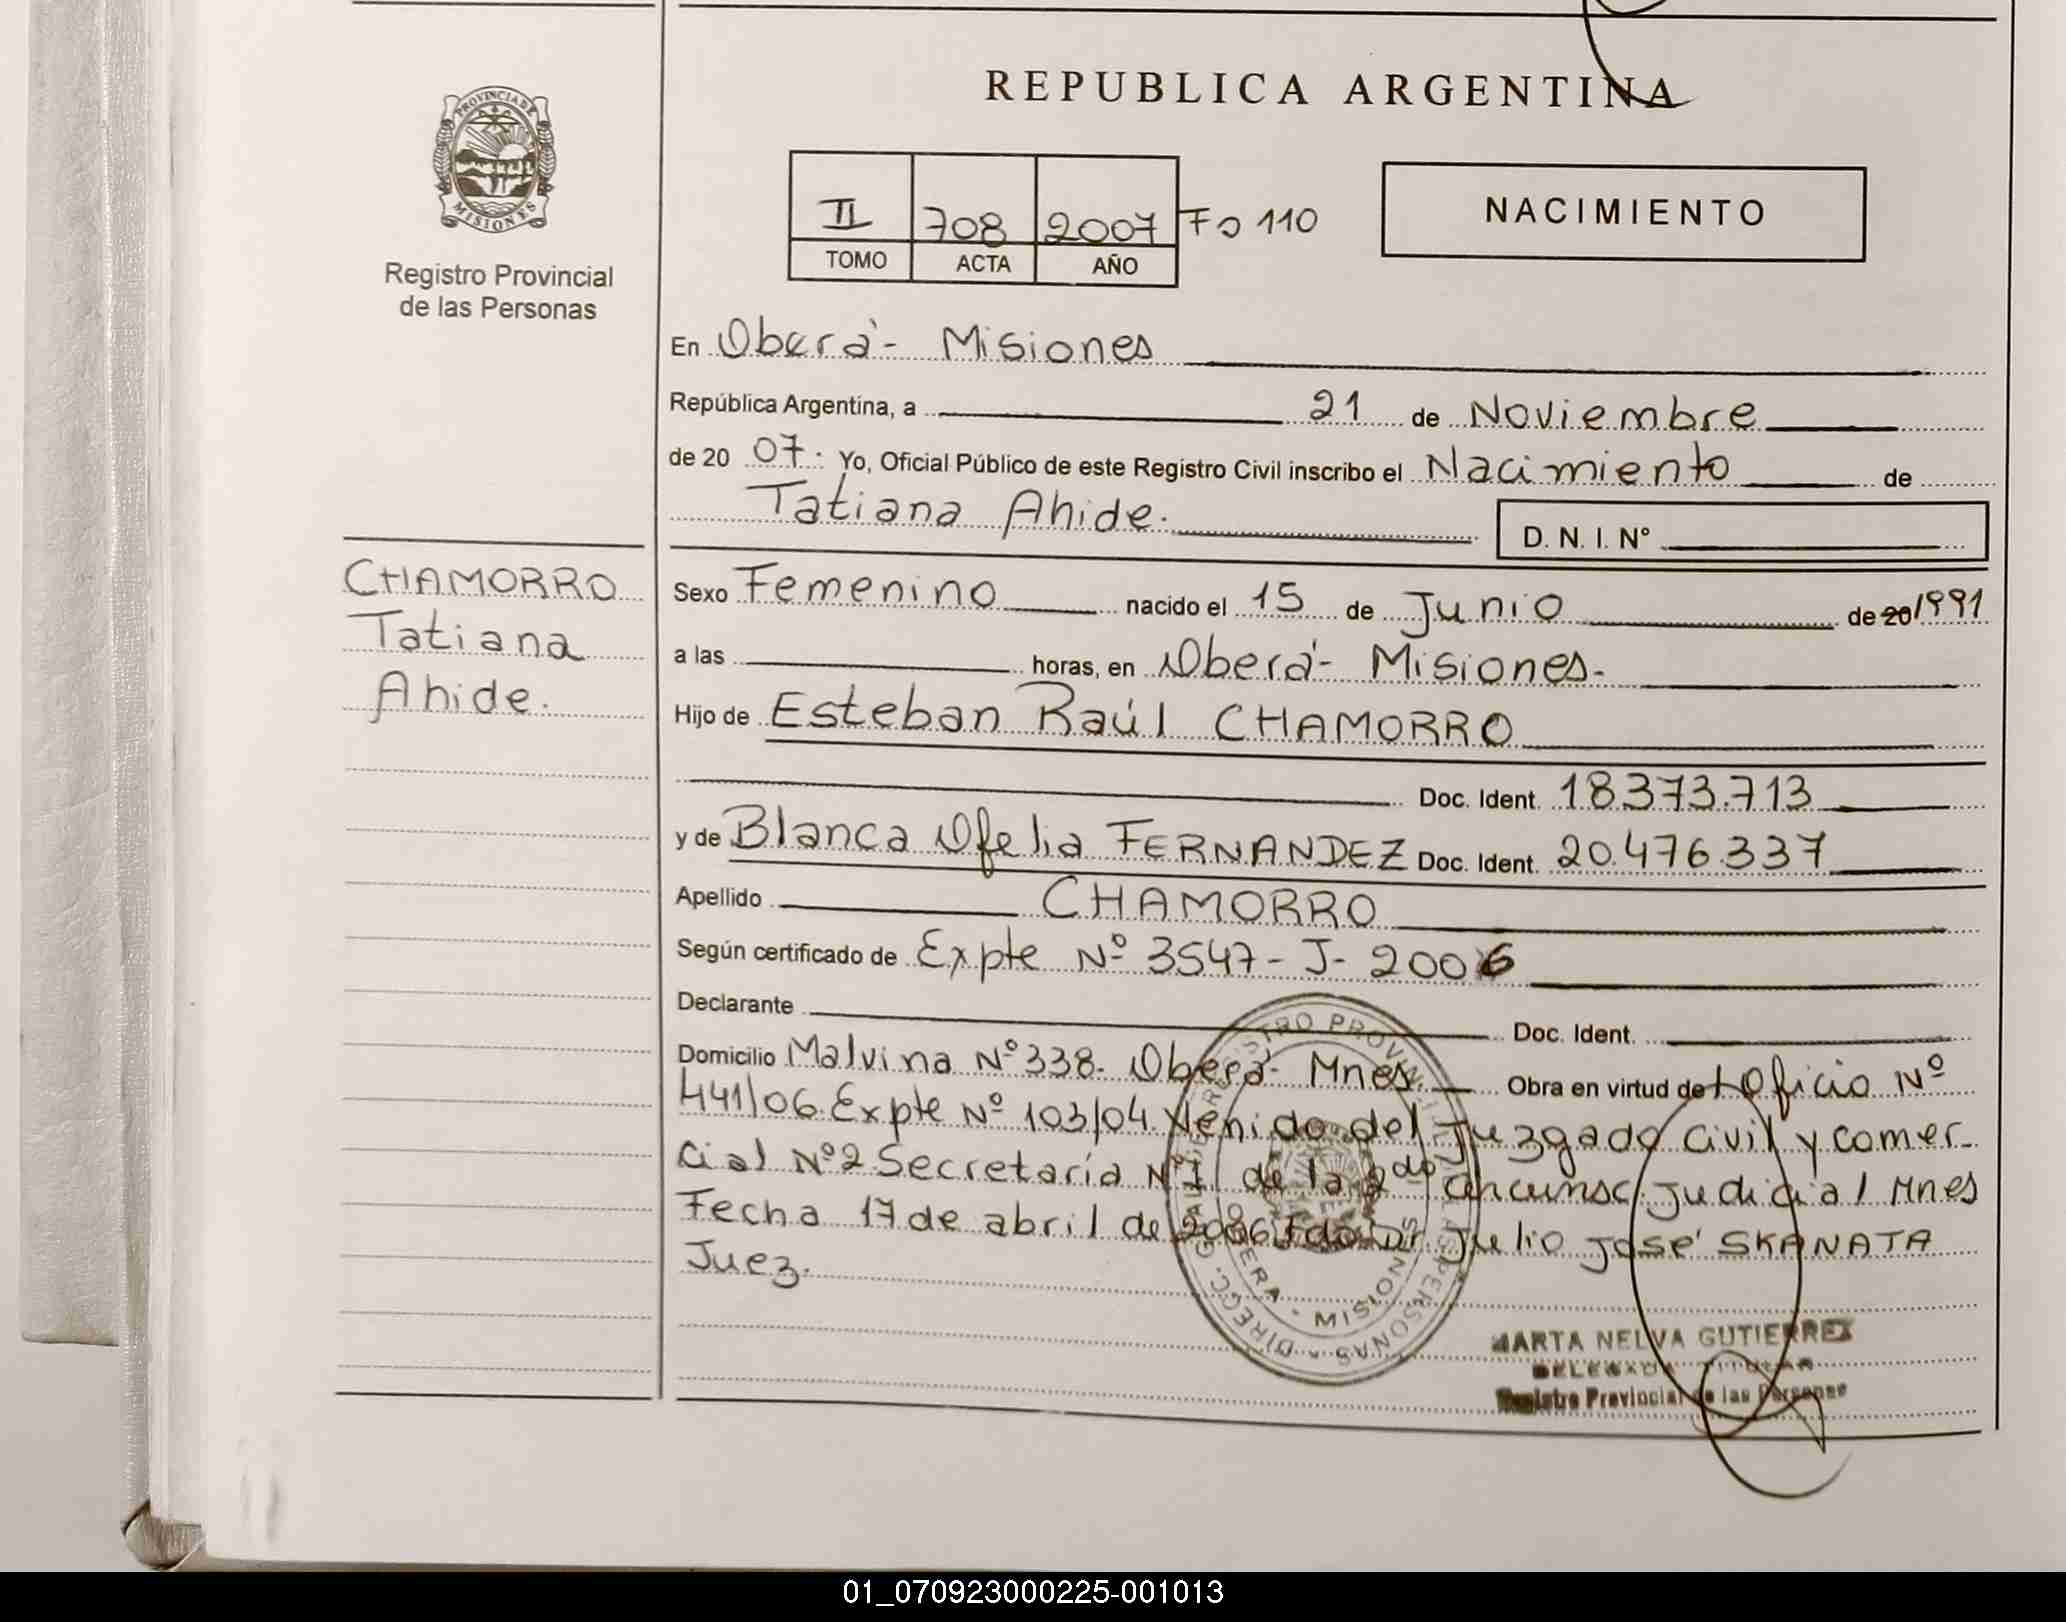 REPUBLICA ARGENTINA
PROVINCIA DE
MISIONES
Registro Provincial
de las Personas
II 708 2007 Fo 110
TOMO ACTA AÑO
NACIMIENTO
En Oberá - Misiones
República Argentina, a 21 de Noviembre
de 20 07. Yo, Oficial Público de este Registro Civil inscribo el Nacimiento de
Tatiana Ahide.
D. N. I. Nº
CHAMORRO
Tatiana
Ahide.
Sexo Femenino nacido el 15 de Junio de 20 1991
a las horas, en Oberá - Misiones.
Hijo de Esteban Raúl CHAMORRO
Doc. Ident. 18.373.713
y de Blanca Ofelia FERNANDEZ Doc. Ident. 20.476.337
Apellido CHAMORRO
Según certificado de Expte Nº 3547 - J - 2006
Declarante Doc. Ident.
Domicilio Malvina Nº 338. Oberá - Mnes. Obra en virtud de Oficio Nº
441/06. Expte Nº 103/04 Venido del Juzgado Civil y comer-
cial Nº 2 Secretaría Nº 1 de la 2da circunsc. judicial Mnes
Fecha 17 de abril de 2006 Fdo Dr. Julio José SKANATA
Juez.
MISIONES
MARTA NELVA GUTIERREZ
DELEGADA TITULAR
Registro Provincial de las Personas
01_070923000225-001013